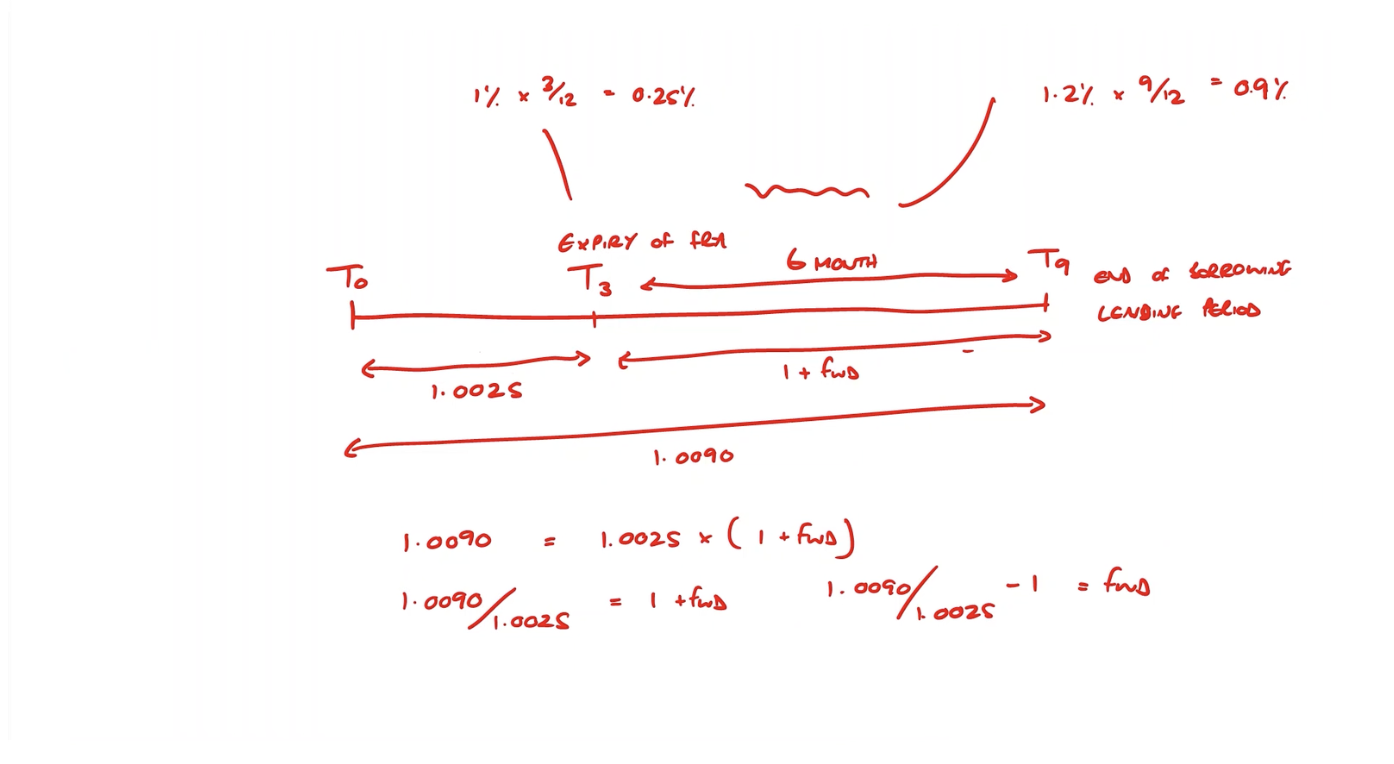 1% × 3/12 = 0.25%
1.2% × 9/12 = 0.9%
EXPIRY OF FRA
T0
T3
6 MONTH
T9
END OF BORROWING
LENDING PERIOD
1.0025
1 + FWD
1.0090
1.0090 = 1.0025 × (1 + FWD)
1.0090/1.0025 = 1 + FWD
1.0090/1.0025 - 1 = FWD